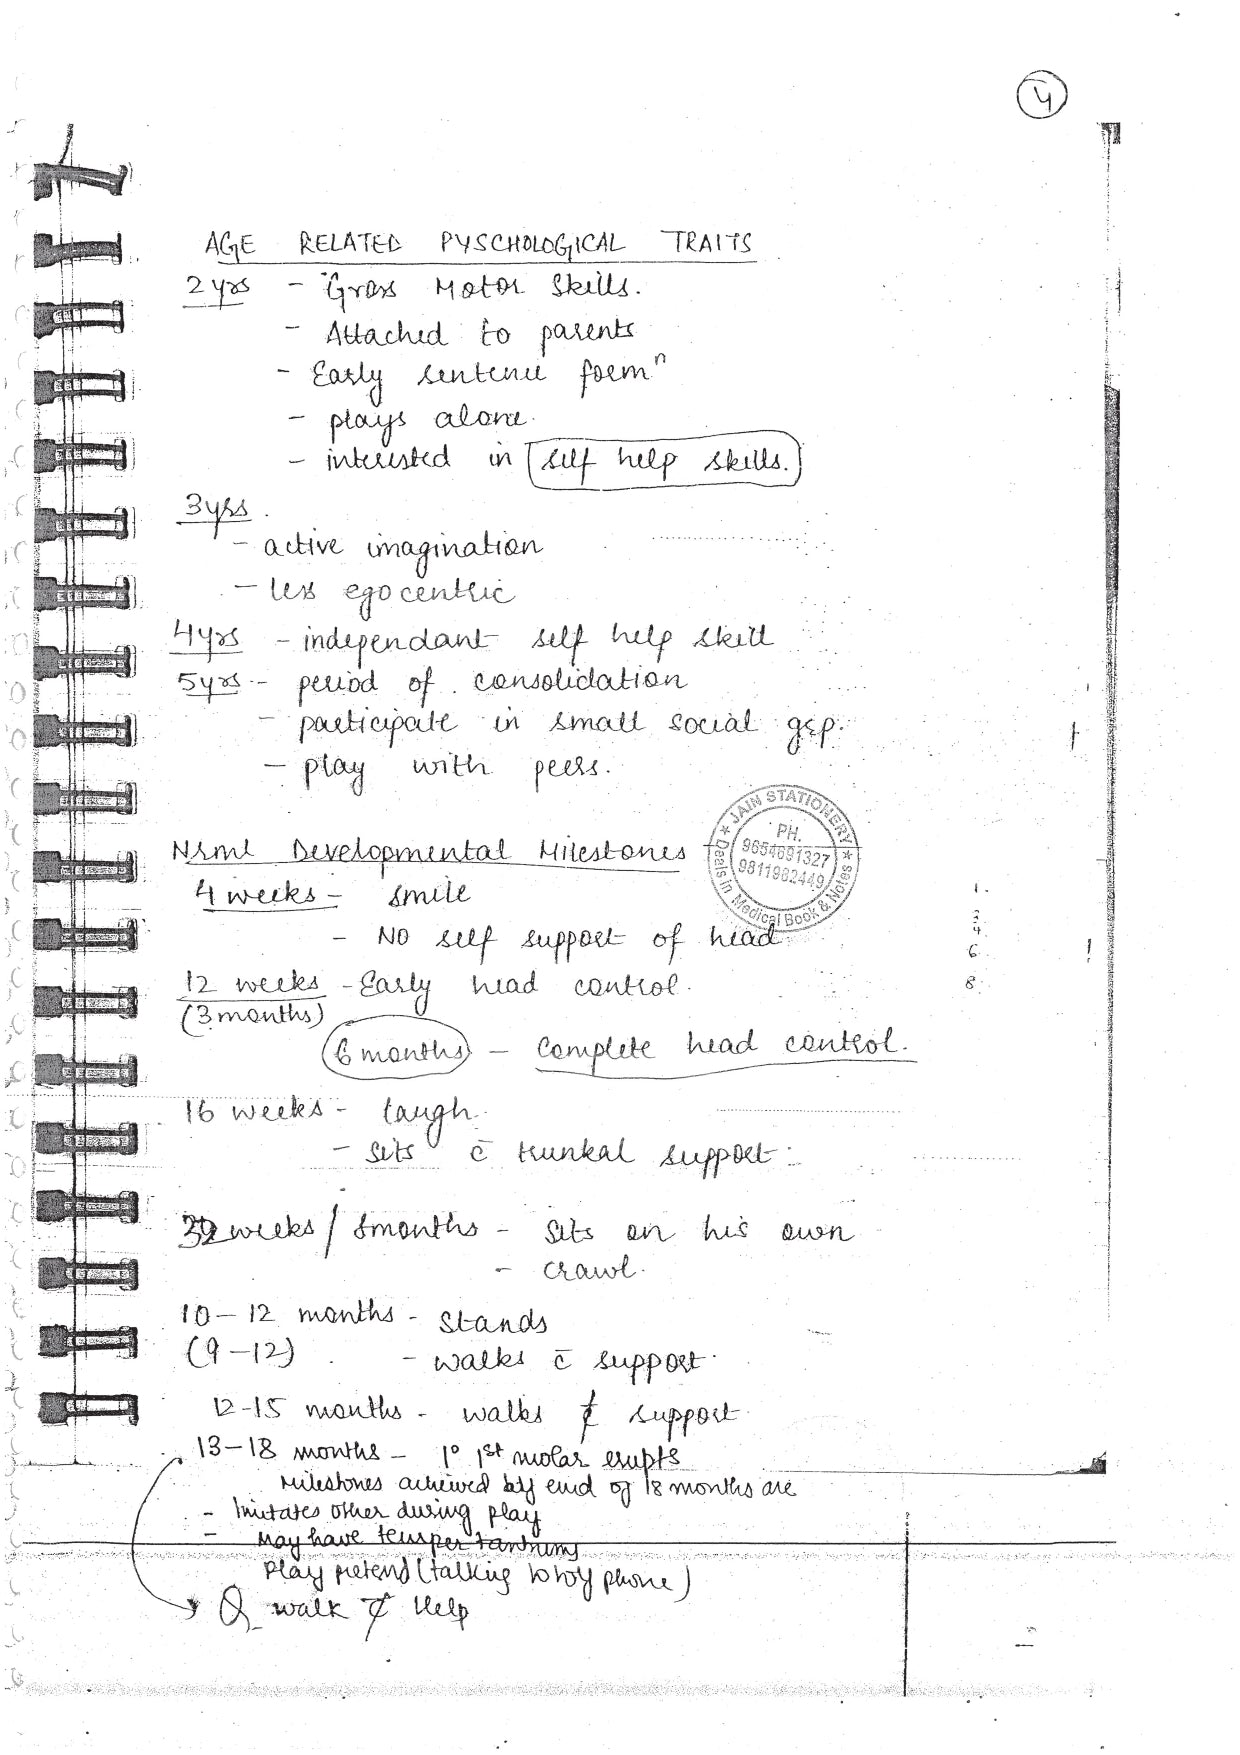 4
AGE RELATED PYSCHOLOGICAL TRAITS
2 yrs - Gross Motor Skills.
- Attached to parents
- Early sentence formⁿ
- plays alone.
- interested in self help skills.
3 yrs.
- active imagination
- less egocentric
4 yrs - independant self help skill
5 yrs - period of consolidation
- participate in small social grp.
- play with peers.
JAIN STATIONERY
PH.
9654691327
9811982449
Deals in Medical Book & Notes
Nrml Developmental Milestones
4 weeks - smile
- NO self support of head.
12 weeks - Early head control.
(3 months)
6 months - complete head control.
16 weeks - laugh.
- sits c̄ trunkal support.
32 weeks / 8 months - sits on his own
- crawl.
10-12 months - stands
(9-12) - walks c̄ support.
12-15 months - walks support.
13-18 months - 1° 1st molar erupts
Milestones achieved by end of 18 months are
- Imitates other during play
- May have temper tantrums
Play pretend (talking to toy phone)
Q walk Help